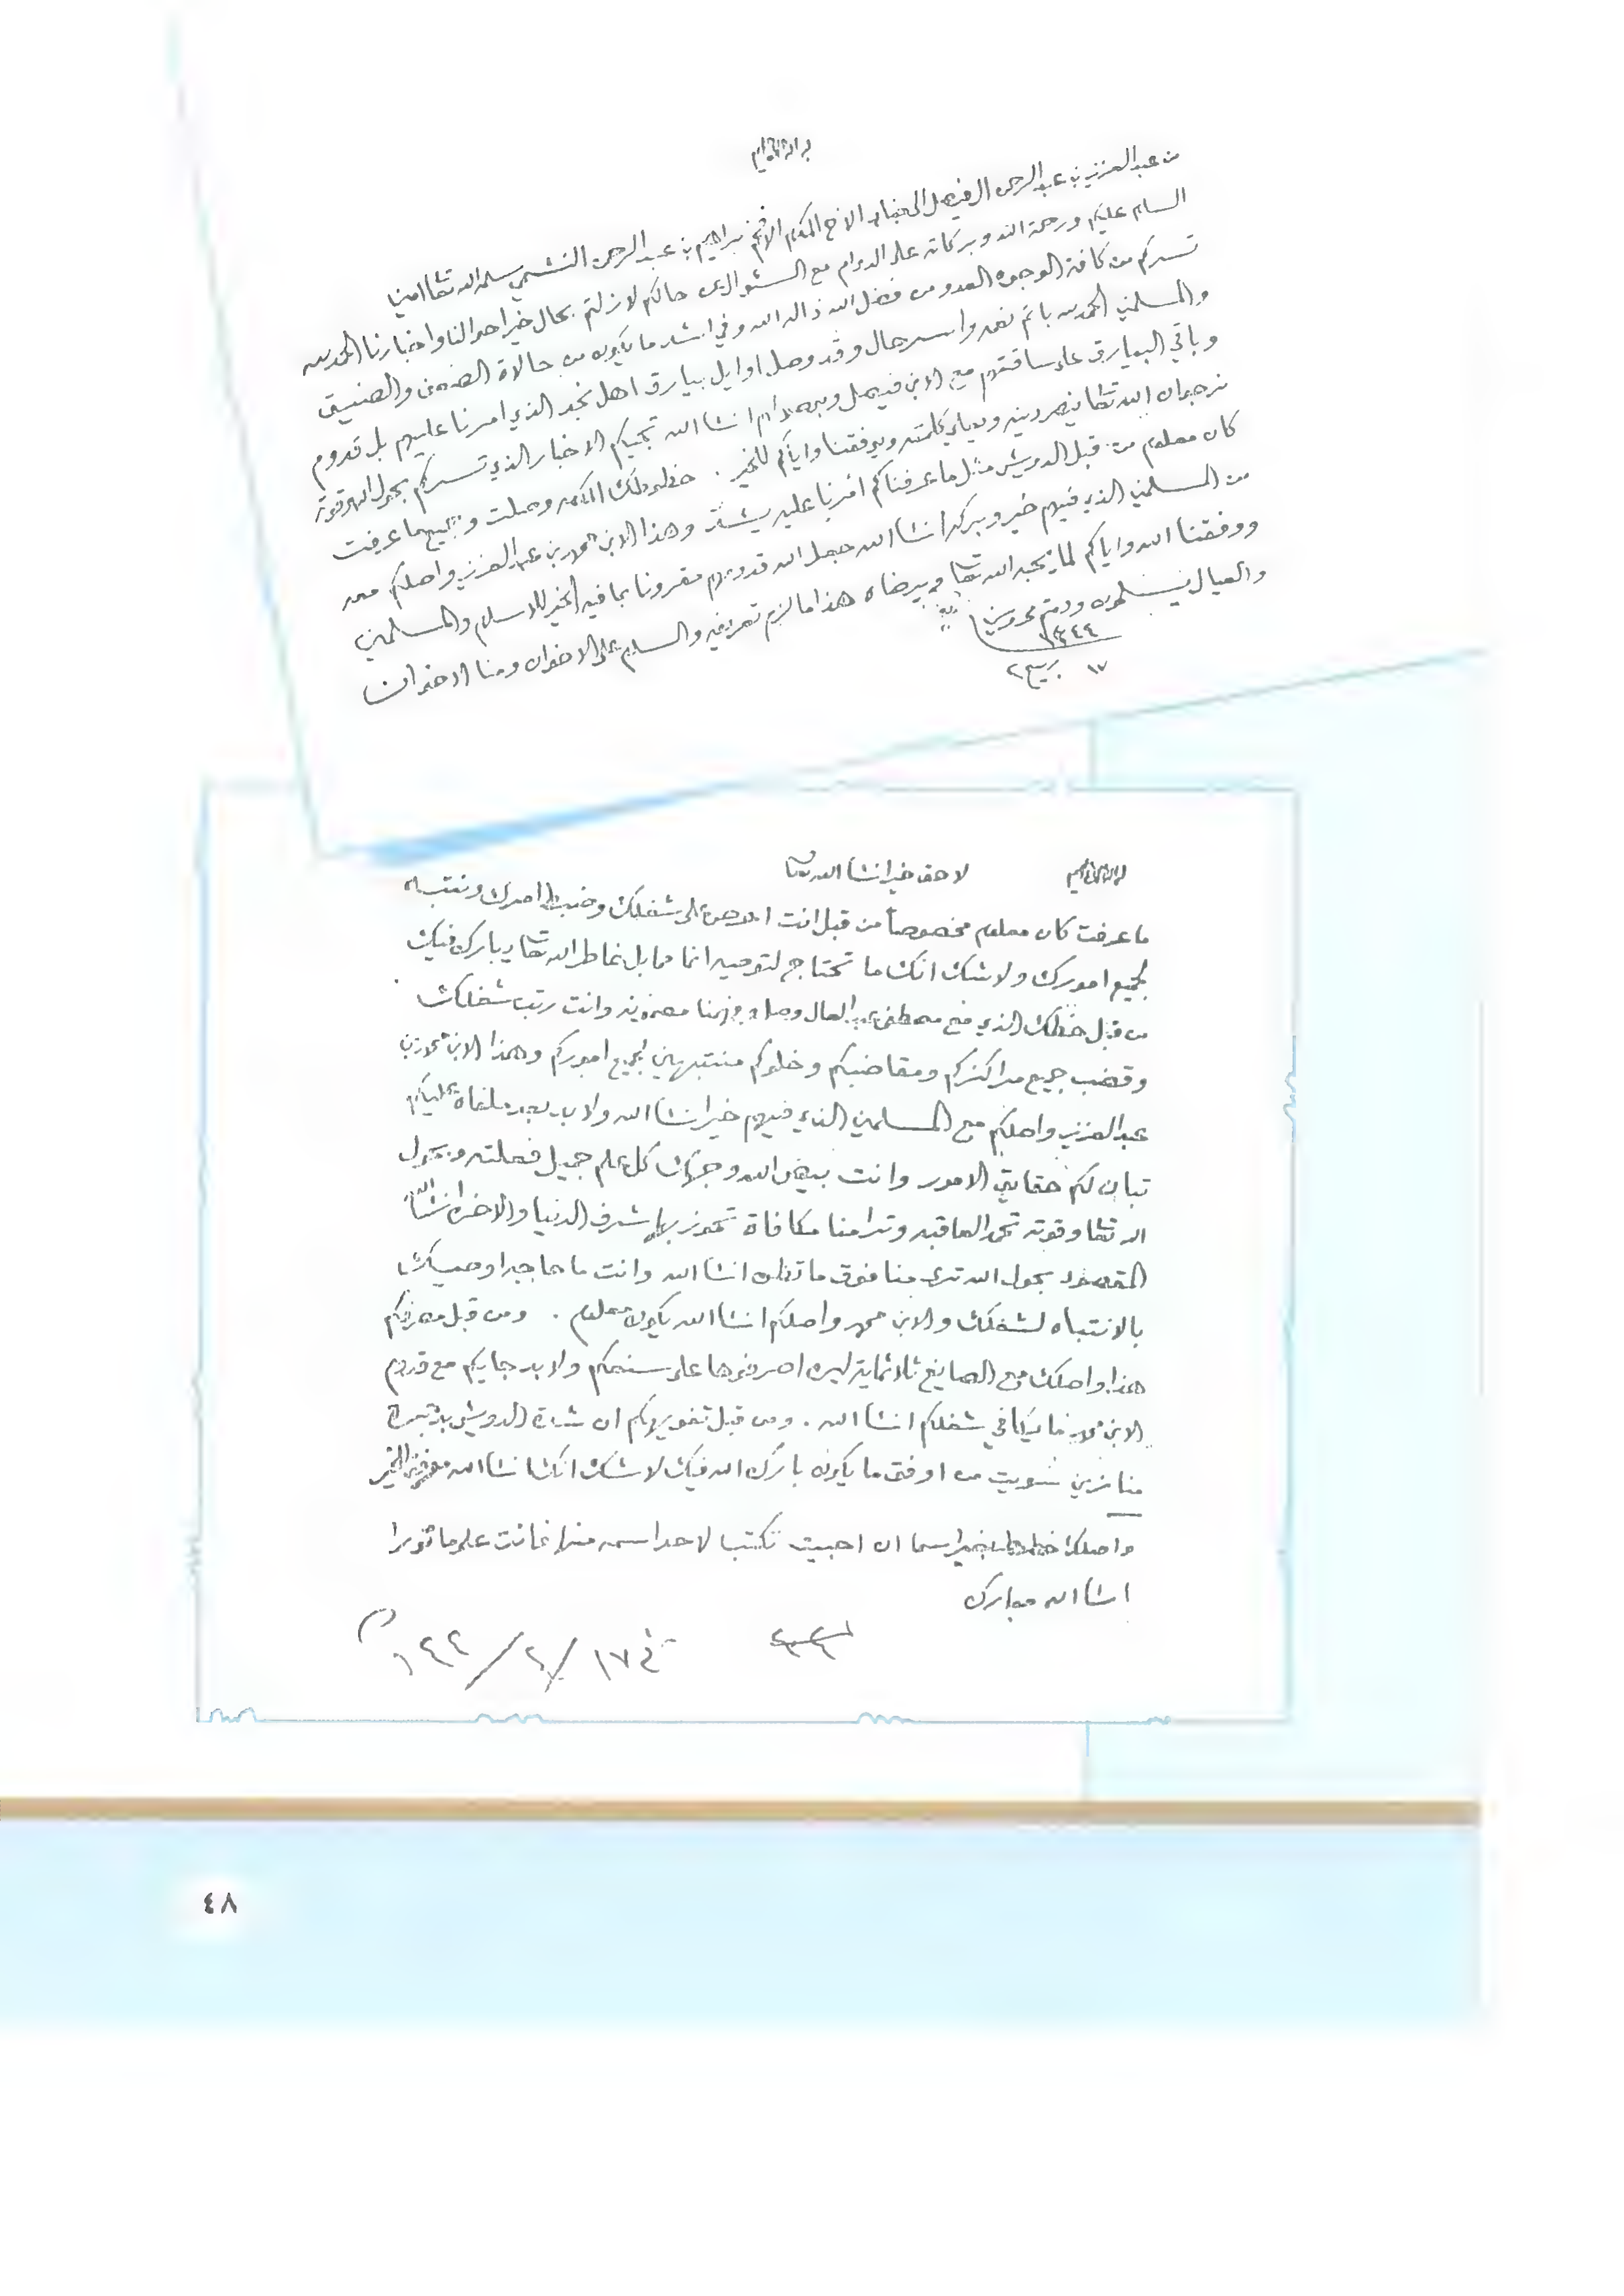 من عبد العزيز بن عبد الرحمن ال فيصل الى جناب الاخ المكرم الافخم ابراهيم بن عبد الرحمن النشمي سلمه الله تعا امين
السلام عليكم ورحمة الله وبركاته على الدوام مع السئوال عن حالكم لازلتم بحال خير احوالنا واخبارنا الحمد لله
تسركم من كافة الوجوه العدو من فضل الله ذاله الله وفي اشد ما يكون من حالاة الضعف والضيق
والمسلمين الحمد لله باتم نعمه واسر حال وقد وصل اوايل بيارق اهل نجد الذي امرنا عليهم بل قدوم
وباقي البيارق على ساقتهم مع الابن فيصل انشا الله تجيكم الاخبار الذي تسركم بحول الله وقوته
نرجوا ان الله تعا ينصر دينه ويعلي كلمته ويوفقنا واياكم للخير . خطوطك المكرمه وصلت وجميع ما عرفت
كان معلوم من قبل الدويش مثل ما عرفناكم امرنا عليه يشد وهذا الابن محمد بن عبد العزيز واصلكم معه
من المسلمين الذي فيهم خير وبركه انشا الله جعل الله قدومهم مقرونا بما فيه الخير للاسلام والمسلمين
ووفقنا الله واياكم لما يحبه الله تعا ويرضاه هذا ما لزم تعريفه والسلام على الاخوان ومنا الاخوان
والعيال يسلمون ودمتم محروسين
١٣٤٤
١٧ ربيع ٢
لاحق خير انشا الله تعا
ما عرفت كان معلوم مخصوصاً من قبل انت احرص على شغلك وضبط امرك ونتبه
لجميع امورك ولاشك انك ما تحتاج لتوصيه انما الله تعا يبارك فيك
من قبل خطك الذي مع مصطفى عبد العال وصل وفهمنا مضمونه وانت رتب شغلك
وقضب جميع مراكزكم ومقاضبكم وخلوكم منتبهين لجميع اموركم وهذا الابن محمد بن
عبد العزيز واصلكم مع المسلمين الذي فيهم خير انشا الله ولابد بعد ملفاه عليكم
تبان لكم حقايق الامور وانت بيض الله وجهك كل علم جميل فعلته وبحول
الله تعا وقوته تحمد العاقبه وترا منا مكافاة تحوز بها شرف الدنيا والاخره انشا الله
المقصود بحول الله ترى منا فوق ما تظن انشا الله وانت ما حاجه اوصيك
بالانتباه لشغلك والابن محمد واصلكم انشا الله يكون معلوم . ومن قبل مصرفكم
هذا واصلك مع الصايغ ثلاثماية ليره اصرفوها على سنعكم ولابد جايكم مع قدوم
الابن محمد ما يكافي شغلكم انشا الله . ومن قبل تفويهكم ان شدة الدويش
منا زين سويت من اوفق ما يكون بارك الله فيك لاشك انك انشا الله موفق للخير
واصلك خطوط بغير اسما ان احببت تكتب لاحد اسمه فيها فانت على ما ترا
انشا الله مبارك
في ١٧/٢/٤٤
٤٨